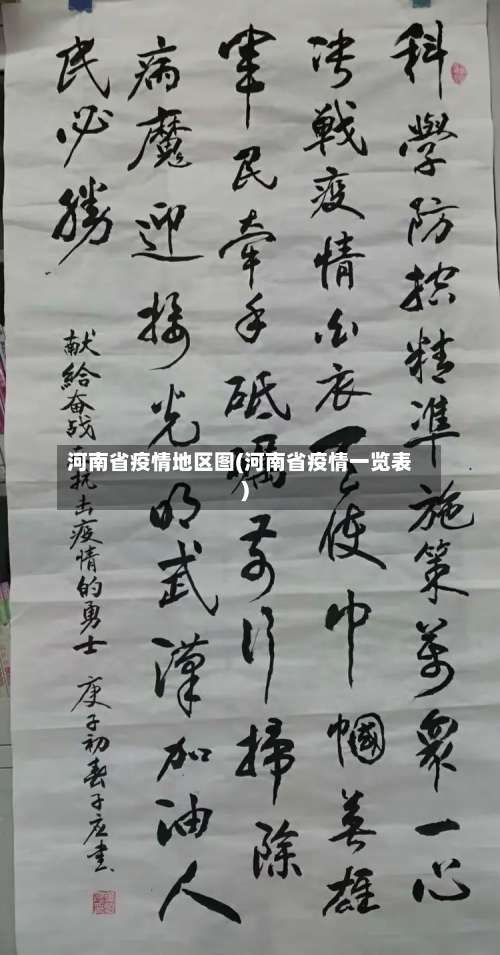 科學防控精準施策萬眾一心
决戰疫情白衣天使巾幗英雄
軍民牽手砥礪前行掃除
病魔迎接光明武漢加油人
民必勝
献給奋战抗击疫情的勇士 庚子初春子应書
河南省疫情地区图(河南省疫情一览表
)